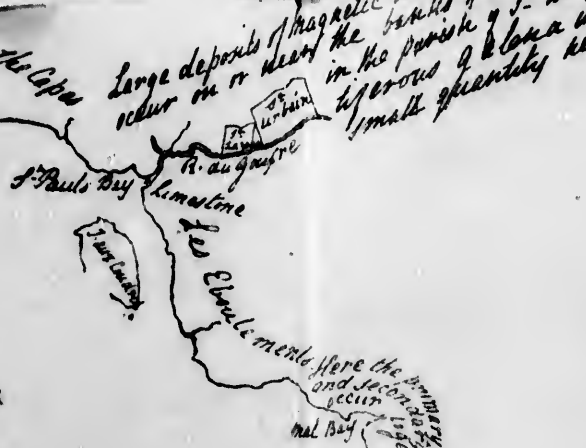 the Capes
Large deposits of magnetic
occur on or near the banks of
in the parish of S.
liferous galena in
small quantity
St Urbain
R. du gouffre
St Pauls Bay
Limestone
I. aux Coudres
Les Eboulements
Here the primary
and secondary
occur
Mal Bay